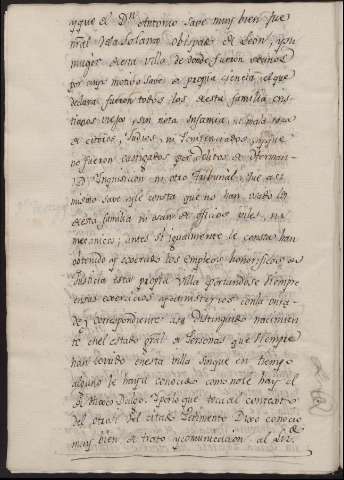 que el Dn Antonio save muy bien fue
natural de la Solana obispado de Leon, y su
muger desta villa de donde fueron vecinos
por cuyo motivo save de propia ciencia el que
declara fueron todos los desta familia cris
tianos viejos, sin nota infamia, ni mala raza
de Judios, ni Penitenciados, ni que
no fueron castigados por delitos de
Inquisicion ni otro Tribunal, que asi
mismo save y le consta que no han usado los
desta familia ni usan de oficios viles, ni
mecanicos; antes si igualmente le consta han
obtenido y exercido los Empleos honorificos de
Justicia desta propia villa portandose siempre
en sus exercicios y ministerios con la onra
dez correspondiente a su distinguido nacimien
to en el estado gral de Personas que siempre
han servido en esta villa sin que en tiempo
alguno se haya conocido como no le hay el
de Hijos Dalgo. Y por lo que toca al contexto
del otrosi del citado Pedimento Dixo conocio
muy bien de trato y comunicacion al Liz.do